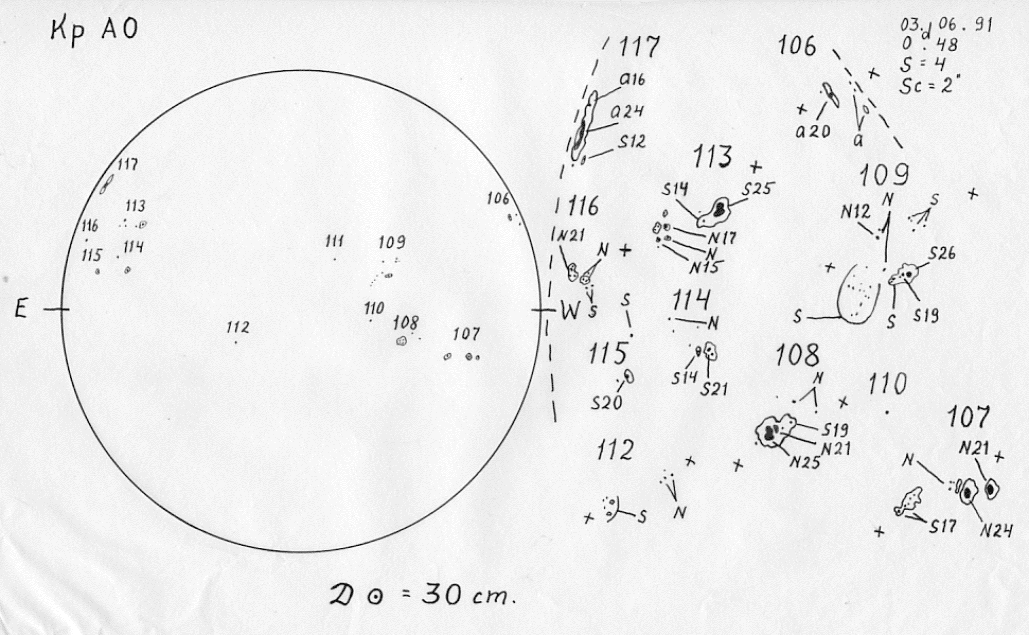 Кр АО
03.06.91
0.d48
S = 4
Sc = 2"
117
a16
a24
S12
106
a20
a
117
113
116
114
115
111
109
106
E
W
110
108
107
112
116
N21
N
S
113
S14
S25
N17
N
N15
109
N12
N
S
S26
S
S
S19
115
S
S20
114
N
S14
S21
108
N
S19
N21
N25
110
107
N21
N
S17
N24
112
S
N
D ⊙ = 30 cm.